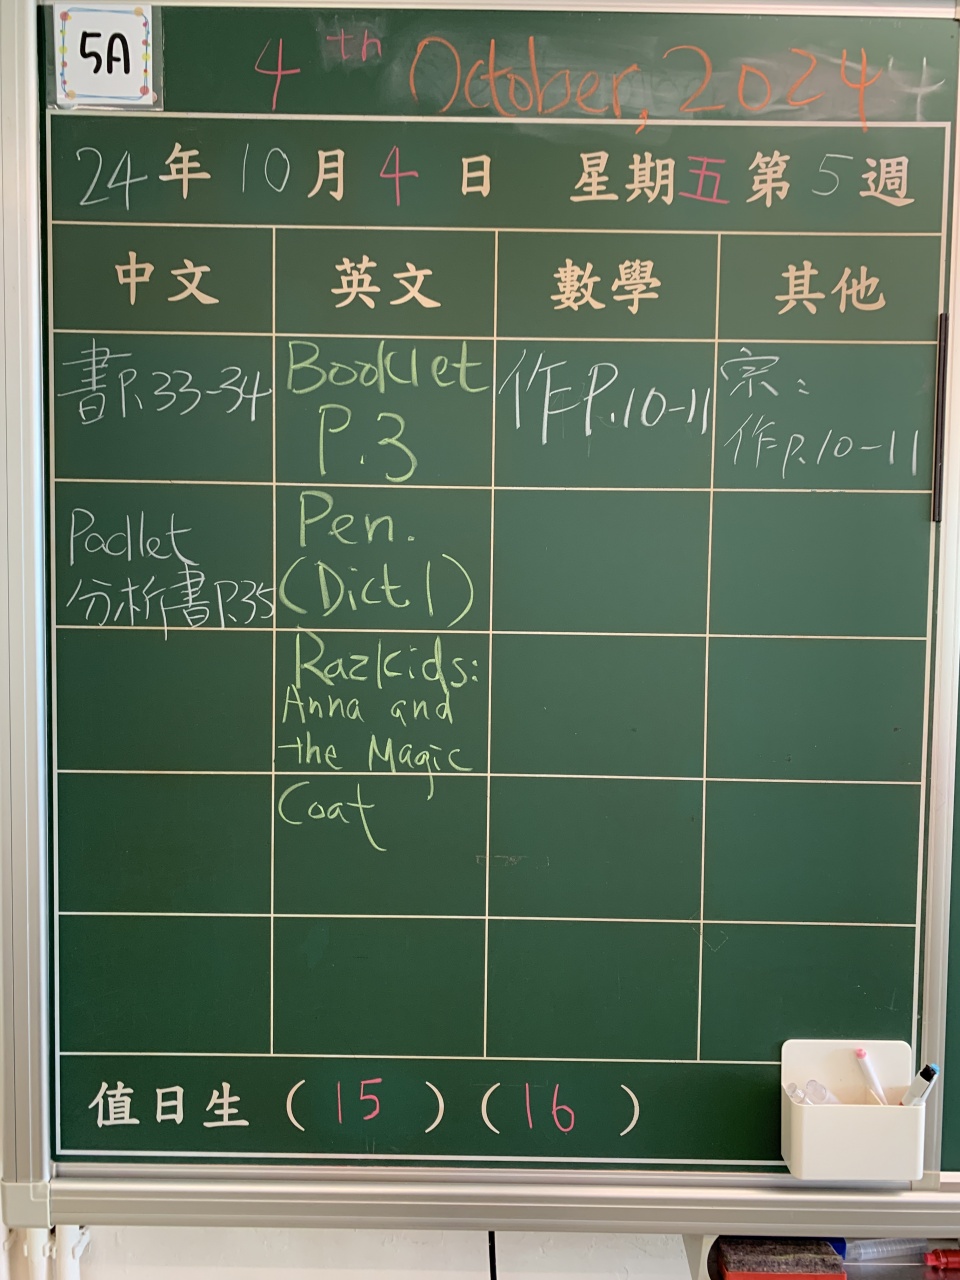 5A
4th October, 2024
24年10月4日 星期五第5週
中文 英文 數學 其他
書P.33-34
Padlet
分析書P.35
Booklet
P.3
Pen.
(Dict.1)
Razkids:
Anna and
the Magic
Coat
作P.10-11
宗:
作P.10-11
值日生(15)(16)